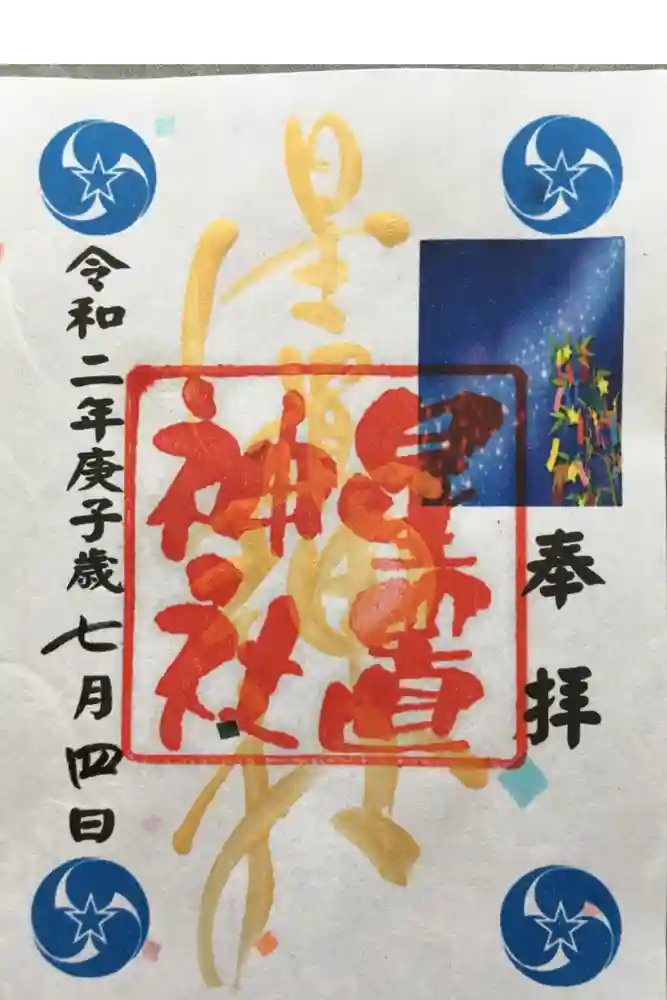 奉拝
星置神社
星置
神社
令和二年庚子歳七月四日